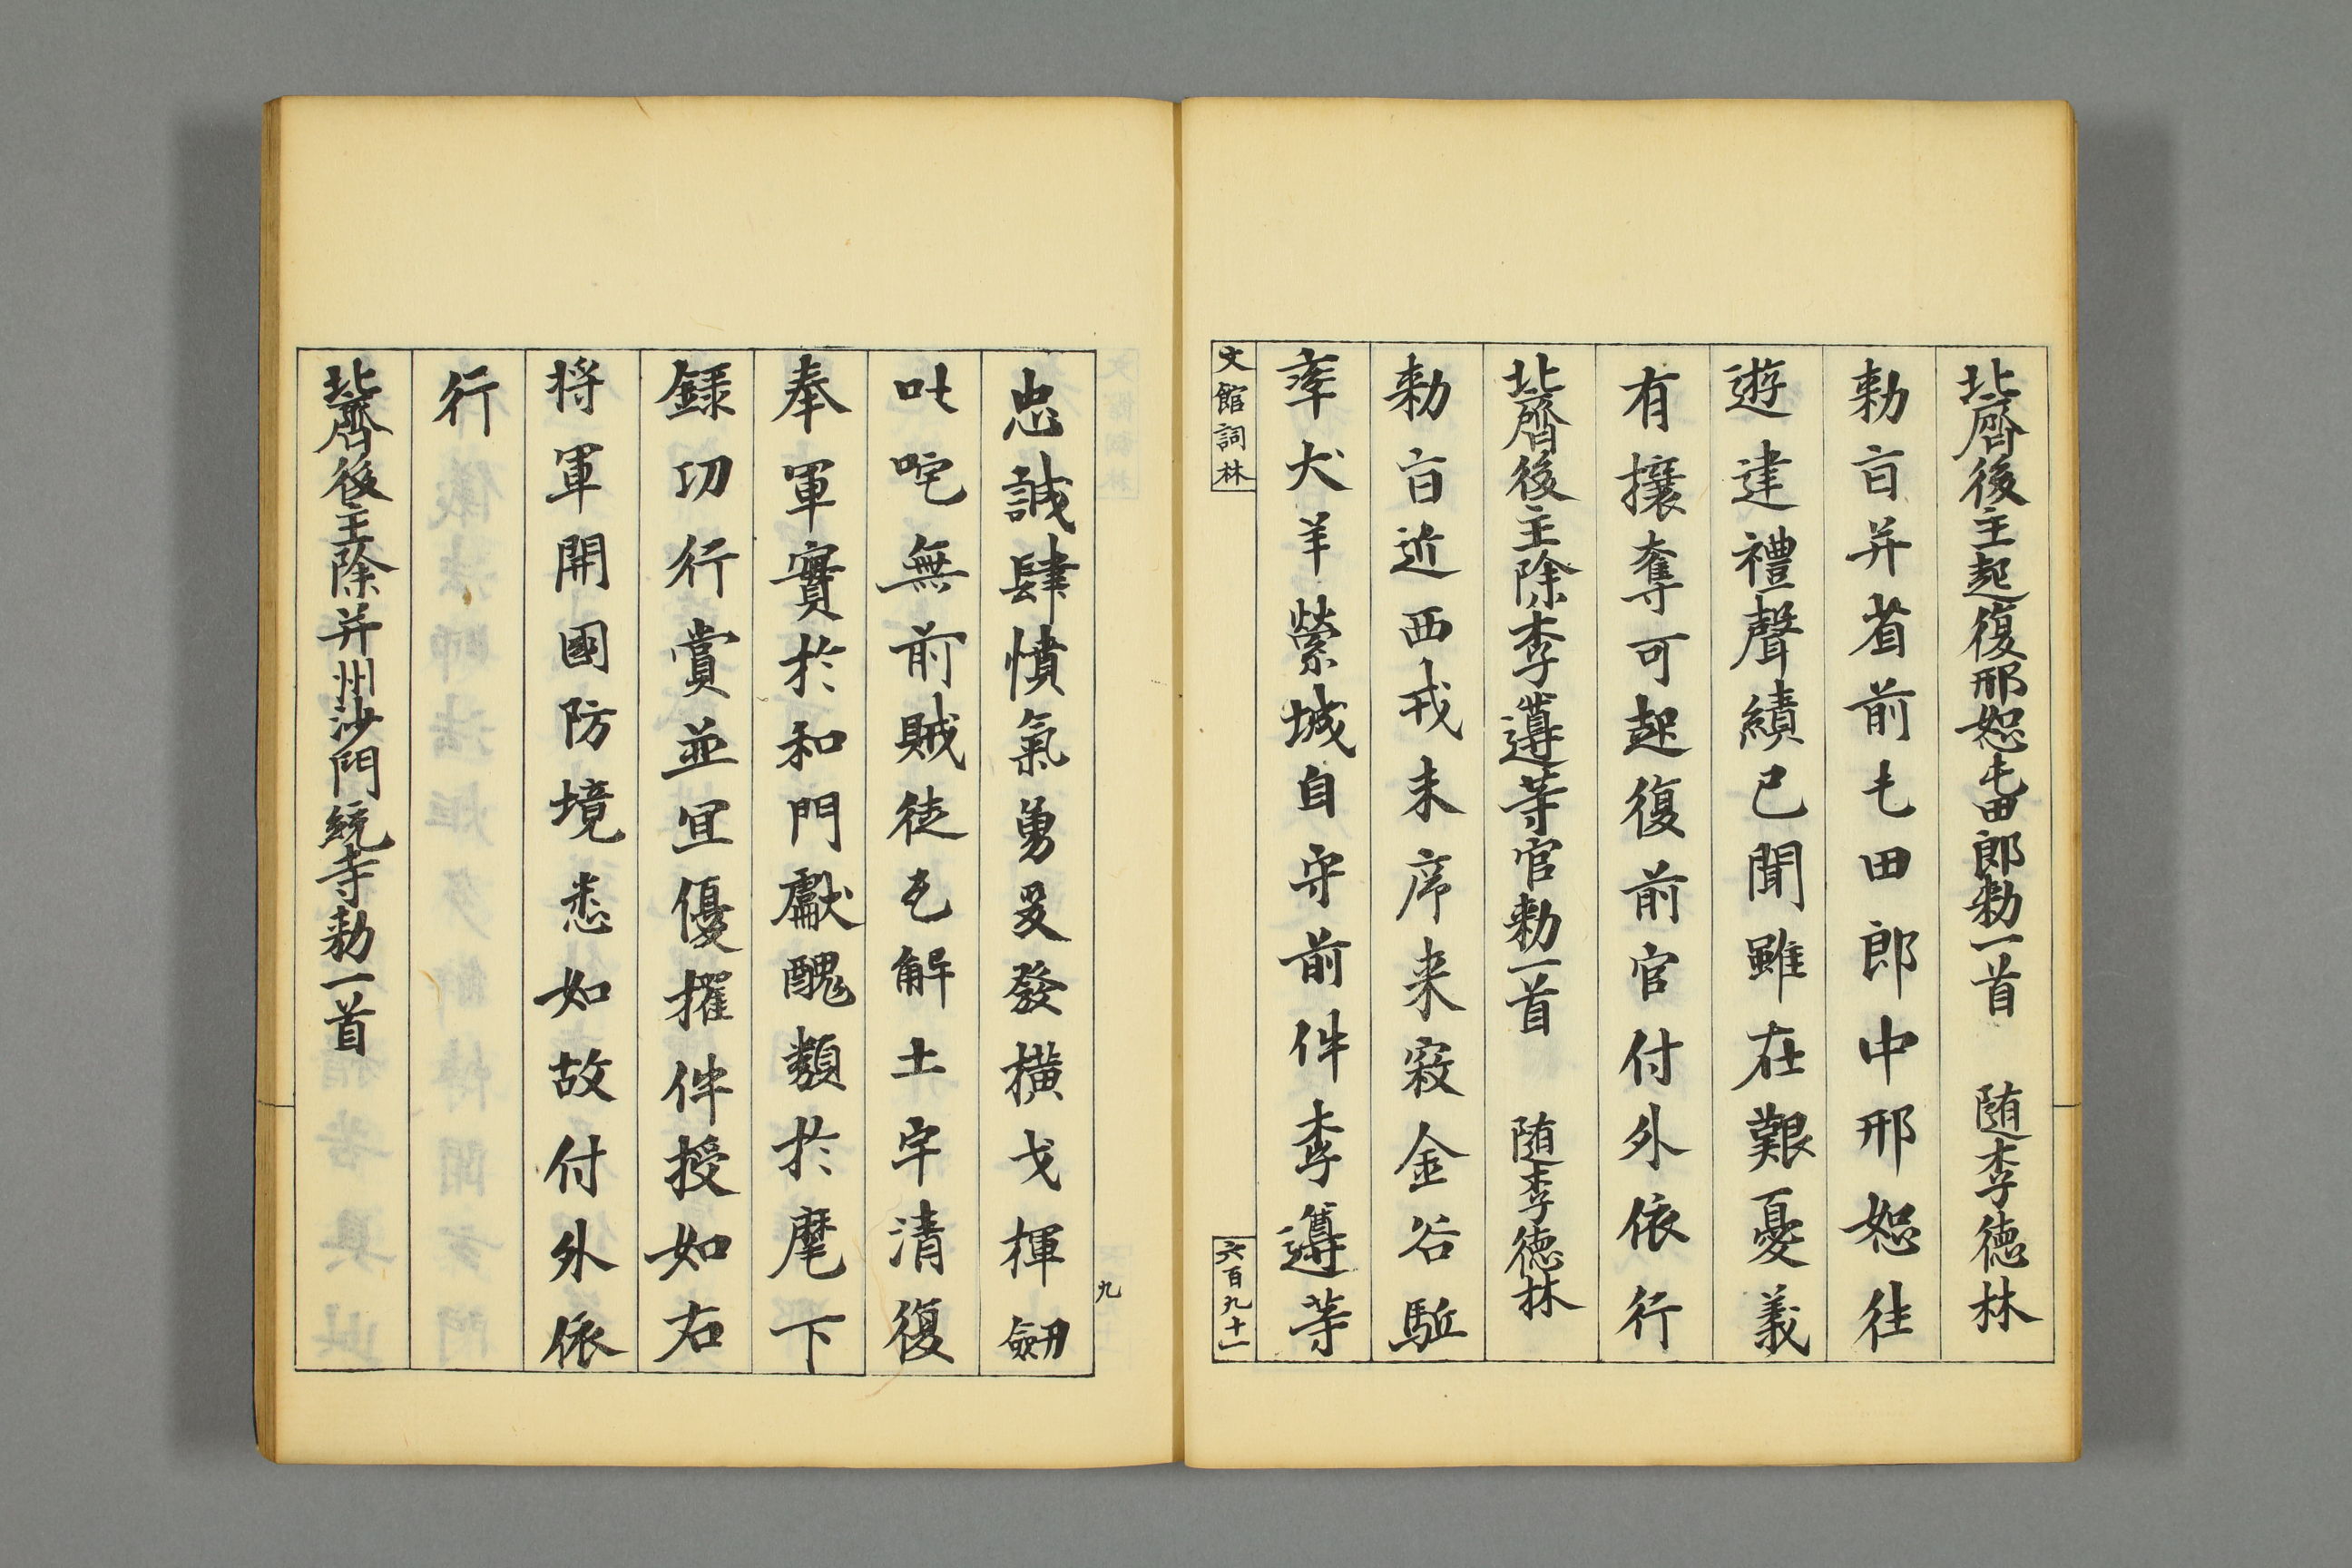 北齊後主起復邢恕屯田郎勅一首　隨李德林
勅旨并省前屯田郎中邢恕往
遊建禮聲績已聞雖在艱憂義
有攘奪可起復前官付外依行
北齊後主除李遵等官勅一首　隨李德林
勅旨近西戎未序来寇金谷駈
率犬羊縈城自守前件李遵等
文館詞林
六百九十一
九
忠誠肆憤氣勇爰發橫戈揮劒
吐咤無前賊徒瓦解土宇清復
奉軍實於和門獻醜類於麾下
録功行賞並宜優擢件授如右
將軍開國防境悉如故付外依
行
北齊後主除并州沙門統寺勅一首